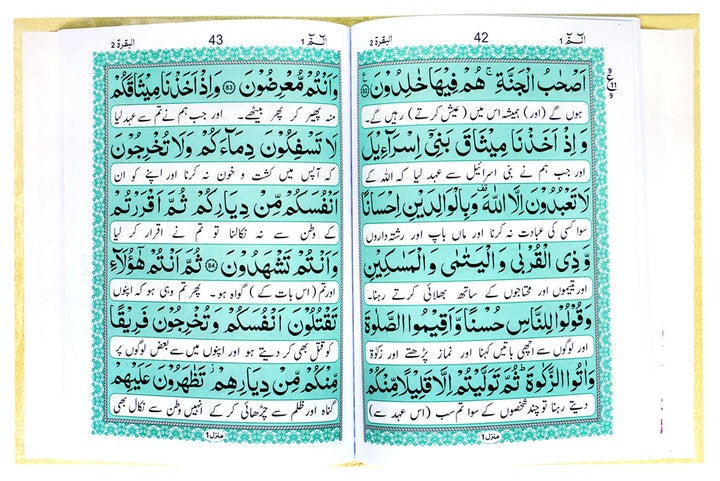 الٓمّٓ 1
42
البقرۃ 2
اَصْحٰبُ الْجَنَّةِ ۚ هُمْ فِيْهَا خٰلِدُوْنَ ﴿82﴾
ہوں گے (اور) ہمیشہ اس میں (عیش کرتے) رہیں گے۔
وَ اِذْ اَخَذْنَا مِيْثَاقَ بَنِيْٓ اِسْرَآءِيْلَ
اور جب ہم نے بنی اسرائیل سے عہد لیا کہ اللہ کے
لَا تَعْبُدُوْنَ اِلَّا اللّٰهَ ۫ وَبِالْوَالِدَيْنِ اِحْسَانًا
سوا کسی کی عبادت نہ کرنا اور ماں باپ اور رشتہ داروں
وَّ ذِي الْقُرْبٰى وَ الْيَتٰمٰى وَ الْمَسٰكِيْنِ
اور یتیموں اور محتاجوں کے ساتھ بھلائی کرتے رہنا۔
وَ قُوْلُوْا لِلنَّاسِ حُسْنًا وَّ اَقِيْمُوا الصَّلٰوةَ
اور لوگوں سے اچھی باتیں کہنا اور نماز پڑھتے اور زکوٰۃ
وَ اٰتُوا الزَّكٰوةَ ؕ ثُمَّ تَوَلَّيْتُمْ اِلَّا قَلِيْلًا مِّنْكُمْ
دیتے رہنا تو چند شخصوں کے سوا تم سب (اس عہد سے)
منزل 1
ع
11
الٓمّٓ 1
43
البقرۃ 2
وَ اَنْتُمْ مُّعْرِضُوْنَ ﴿83﴾ وَ اِذْ اَخَذْنَا مِيْثَاقَكُمْ
منہ پھیر کر پھر بیٹھے۔ اور جب ہم نے تم سے عہد لیا
لَا تَسْفِكُوْنَ دِمَآءَكُمْ وَ لَا تُخْرِجُوْنَ
کہ آپس میں کشت و خون نہ کرنا اور اپنے کو ان
اَنْفُسَكُمْ مِّنْ دِيَارِكُمْ ثُمَّ اَقْرَرْتُمْ
کے وطن سے نہ نکالنا تو تم نے اقرار کر لیا
وَ اَنْتُمْ تَشْهَدُوْنَ ﴿84﴾ ثُمَّ اَنْتُمْ هٰٓؤُلَآءِ
اور تم (اس بات کے) گواہ ہو۔ پھر تم وہی ہو کہ اپنوں
تَقْتُلُوْنَ اَنْفُسَكُمْ وَ تُخْرِجُوْنَ فَرِيْقًا
کو قتل بھی کر دیتے ہو اور اپنوں میں سے بعض لوگوں پر
مِّنْكُمْ مِّنْ دِيَارِهِمْ ؗ تَظٰهَرُوْنَ عَلَيْهِمْ
گناہ اور ظلم سے چڑھائی کر کے انہیں وطن سے نکال بھی
منزل 1